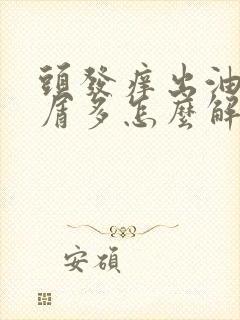 頭發痒出油
屑多怎麼解
安碩